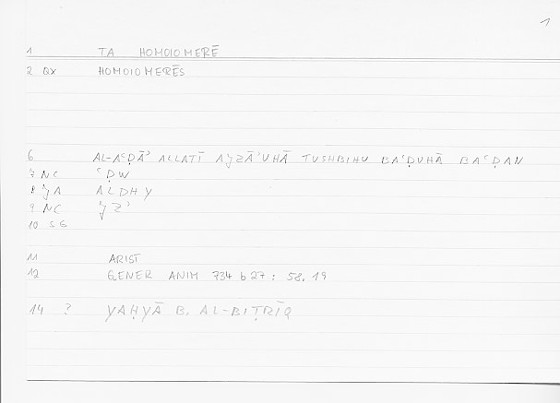 1
1 TA HOMOIOMERĒ
2 QX HOMOIOMERĒS
6 AL-AʿḌĀʾ ALLATĪ AǧZĀʾUHĀ TUSHBIHU BAʿḌUHĀ BAʿḌAN
7 NC ʿḌW
8 ǧA ALDHY
9 NC ǧZʾ
10 SS
11 ARIST
12 GENER ANIM 734 b 27 : 58.19
14 ? YAḤYĀ B. AL-BIṬRĪQ